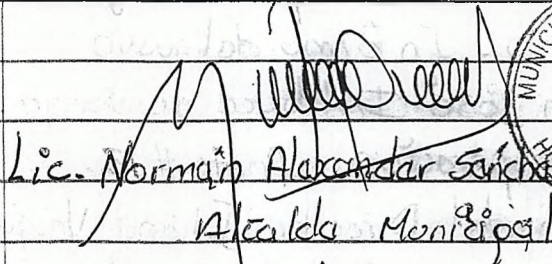 MUNICI
Lic. Norman Alexander Sánche
Alcalde Municipal